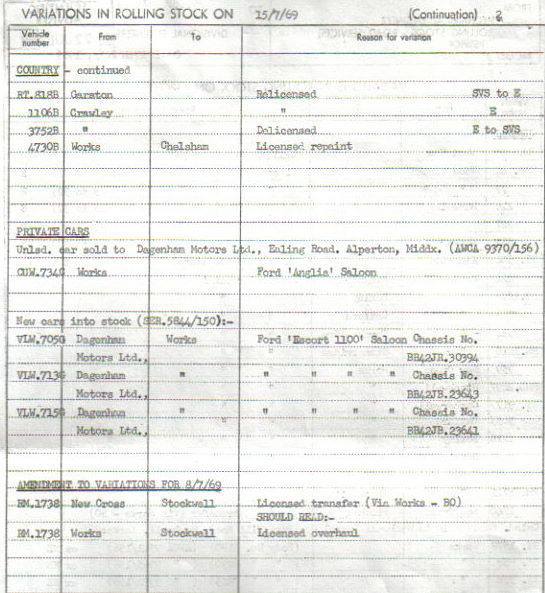 VARIATIONS IN ROLLING STOCK ON 15/7/69 (Continuation) 2
Vehicle number From To Reason for variation
COUNTRY - continued
RT.818B Garston Relicensed SVS to E
1106B Crawley " E
3752B " Delicensed E to SVS
4730B Works Chelsham Licensed repaint
PRIVATE CARS
Unlsd. car sold to Dagenham Motors Ltd., Ealing Road. Alperton, Middx. (AWCA 9370/156)
CUW.734C Works Ford 'Anglia' Saloon
New cars into stock (SER.5844/150):-
VLW.705G Dagenham Works Ford 'Escort 1100' Saloon Chassis No.
Motors Ltd., BB42JR.30394
VLW.713G Dagenham " " " " " Chassis No.
Motors Ltd., BB42JB.23643
VLW.715G Dagenham " " " " " Chassis No.
Motors Ltd., BB42JB.23641
AMENDMENT TO VARIATIONS FOR 8/7/69
RM.1738 New Cross Stockwell Licensed transfer (Via Works - BO)
SHOULD READ:-
RM.1738 Works Stockwell Licensed overhaul